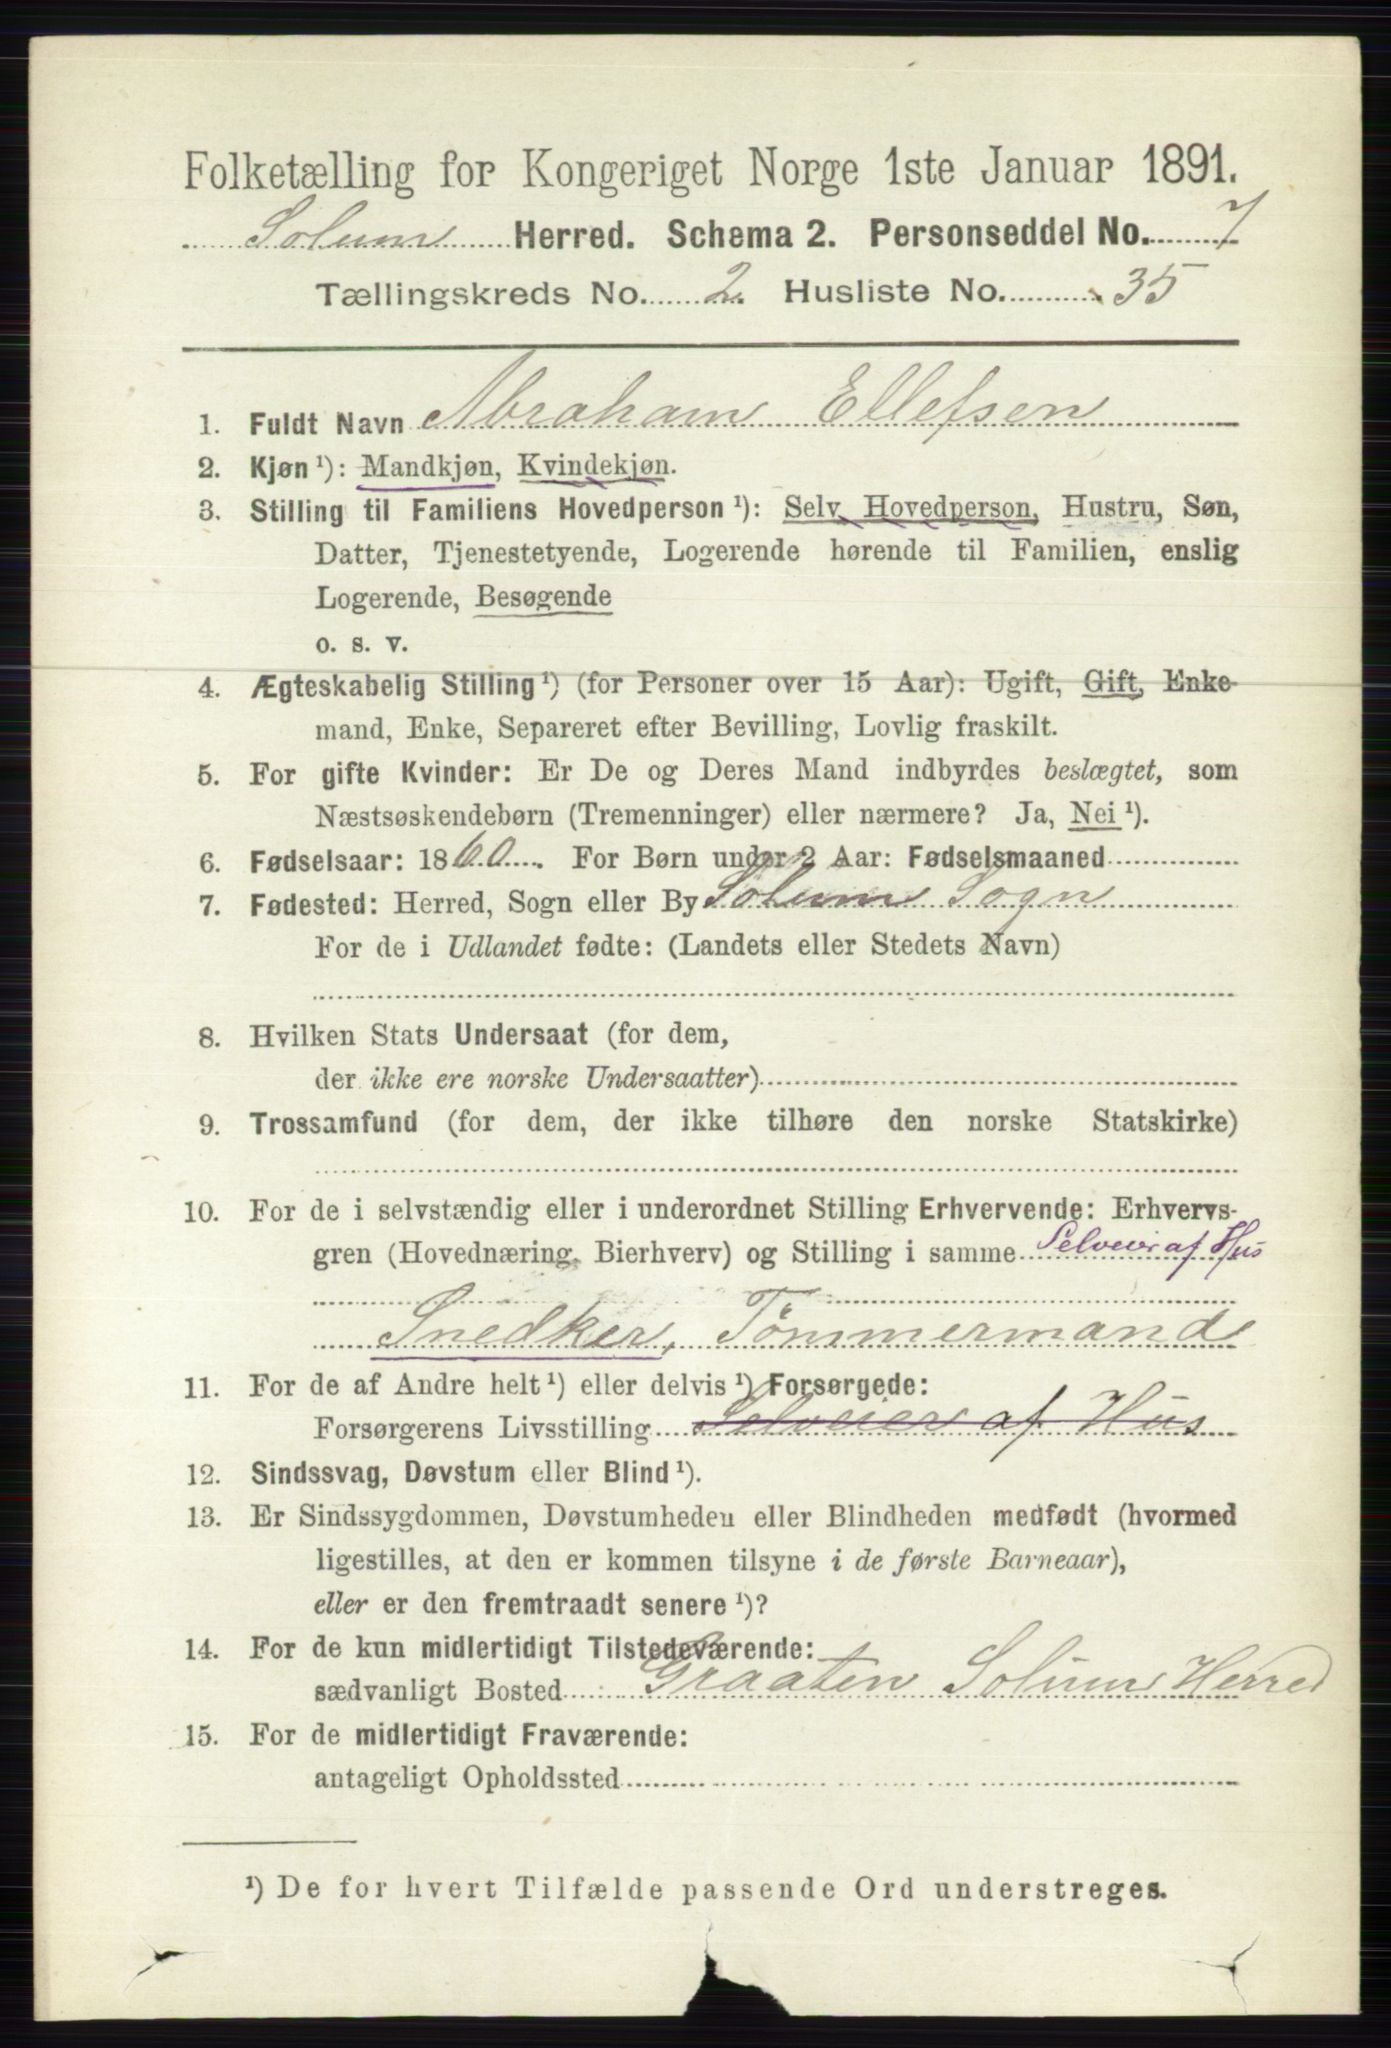 Folketælling for Kongeriget Norge 1ste Januar 1891.
Solum Herred. Schema 2. Personseddel No. 7
Tællingskreds No. 2. Husliste No. 35
1. Fuldt Navn Abraham Ellefsen
2. Kjøn ¹): Mandkjøn, Kvindekjøn.
3. Stilling til Familiens Hovedperson ¹): Selv Hovedperson, Hustru, Søn,
Datter, Tjenestetyende, Logerende hørende til Familien, enslig
Logerende, Besøgende
o. s. v.
4. Ægteskabelig Stilling ¹) (for Personer over 15 Aar): Ugift, Gift, Enke-
mand, Enke, Separeret efter Bevilling, Lovlig fraskilt.
5. For gifte Kvinder: Er De og Deres Mand indbyrdes beslægtet, som
Næstsøskendebørn (Tremenninger) eller nærmere? Ja, Nei ¹).
6. Fødselsaar: 1860. For Børn under 2 Aar: Fødselsmaaned
7. Fødested: Herred, Sogn eller By Solum Sogn
For de i Udlandet fødte: (Landets eller Stedets Navn)
8. Hvilken Stats Undersaat (for dem,
der ikke ere norske Undersaatter)
9. Trossamfund (for dem, der ikke tilhøre den norske Statskirke)
10. For de i selvstændig eller i underordnet Stilling Erhvervende: Erhvervs-
gren (Hovednæring, Bierhverv) og Stilling i samme Selveier af Hus
Snedker, Tømmermand
11. For de af Andre helt ¹) eller delvis ¹) Forsørgede:
Forsørgerens Livsstilling Selveier af Hus
12. Sindssvag, Døvstum eller Blind ¹).
13. Er Sindssygdommen, Døvstumheden eller Blindheden medfødt (hvormed
ligestilles, at den er kommen tilsyne i de første Barneaar),
eller er den fremtraadt senere ¹)?
14. For de kun midlertidigt Tilstedeværende:
sædvanligt Bosted Graaten Solum Herred
15. For de midlertidigt Fraværende:
antageligt Opholdssted
¹) De for hvert Tilfælde passende Ord understreges.